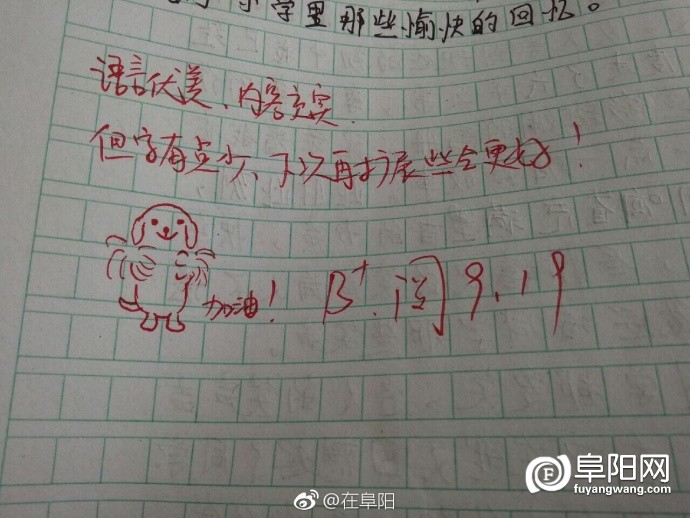 小学里那些愉快的回忆。
语言优美、内容充实
但字有点少、下次再扩展些会更好！
加油！
B+. 阅 9.19
@在阜阳
阜阳网
fuyangwang.com